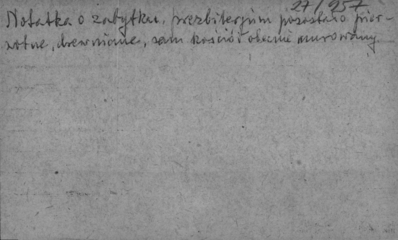 27/957
Notatka o zabytku. prezbiterjum pozostało pier-
wotne, drewniane, sam kościół obecnie murowany